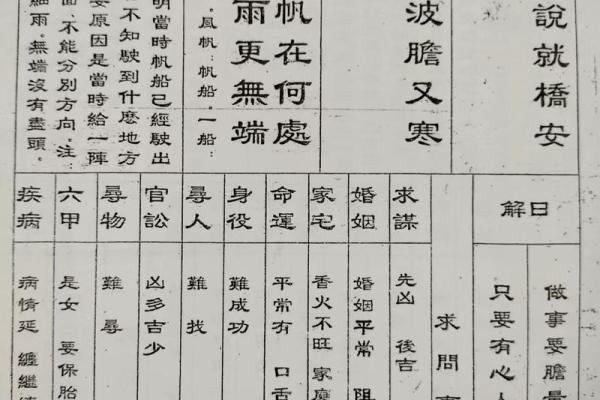 說就橋安
波膽又寒
帆在何處
雨更無端
。風帆：帆船。一船：
明當時帆船已經駛出
不知駛到什麼地方
要原因是當時給一陣
面、不能分別方向。注
細雨。無端沒有盡頭。
日解
做事要膽
只要有心人
求問
求謀
先凶 後吉
婚姻
婚姻平常 阻
家宅
香火不旺 家
命運
平常有 口舌
身役
難成功
尋人
難 找
官訟
凶多吉少
尋物
難 尋
六甲
是女 要保胎
疾病
病情延 纏繼